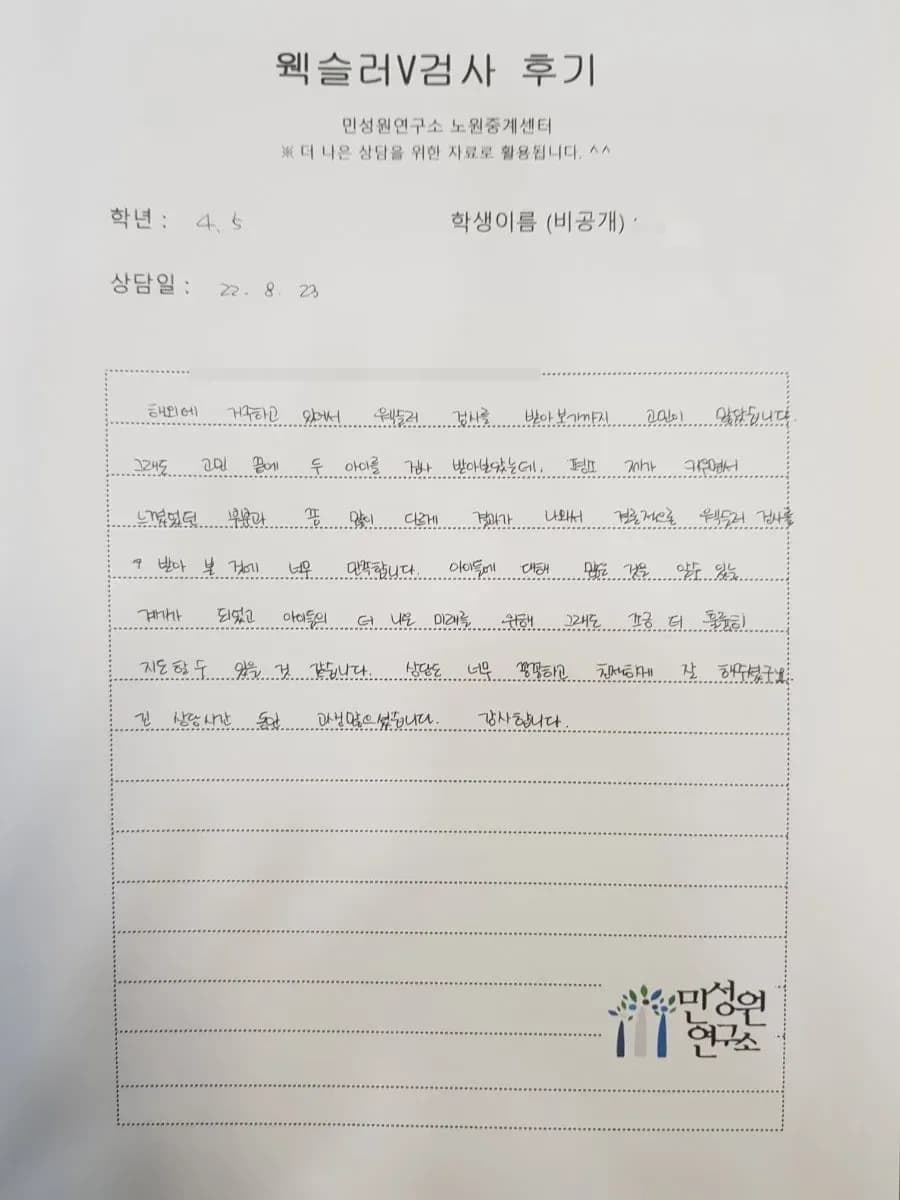 웩슬러V검사 후기
민성원연구소 노원중계센터
※ 더 나은 상담을 위한 자료로 활용됩니다. ^^
학년 : 4, 5 학생이름 (비공개)
상담일 : 22. 8. 23
해외에 거주하고 있어서 웩슬러 검사를 받아보기까지 고민이 많았습니다.
그래도 고민 끝에 두 아이를 검사 받아보았는데, 평소 제가 키우면서
느꼈었던 부분과 쫌 많이 다르게 결과가 나와서 결론적으로 웩슬러 검사를
받아 본 것에 너무 만족합니다. 아이들에 대해 많은 것을 알수 있는
계기가 되었고 아이들의 더 나은 미래를 위해 그래도 조금 더 훌륭히
지도할 수 있을 것 같습니다. 상담도 너무 꼼꼼하고 친절하게 잘 해주셨구요.
긴 상담시간 동안 고생많으셨습니다. 감사합니다.
민성원
연구소